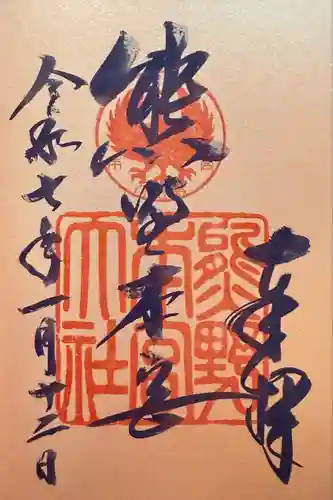 奉拝
熊野本宮
令和七年一月十三日
熊野本宮大社